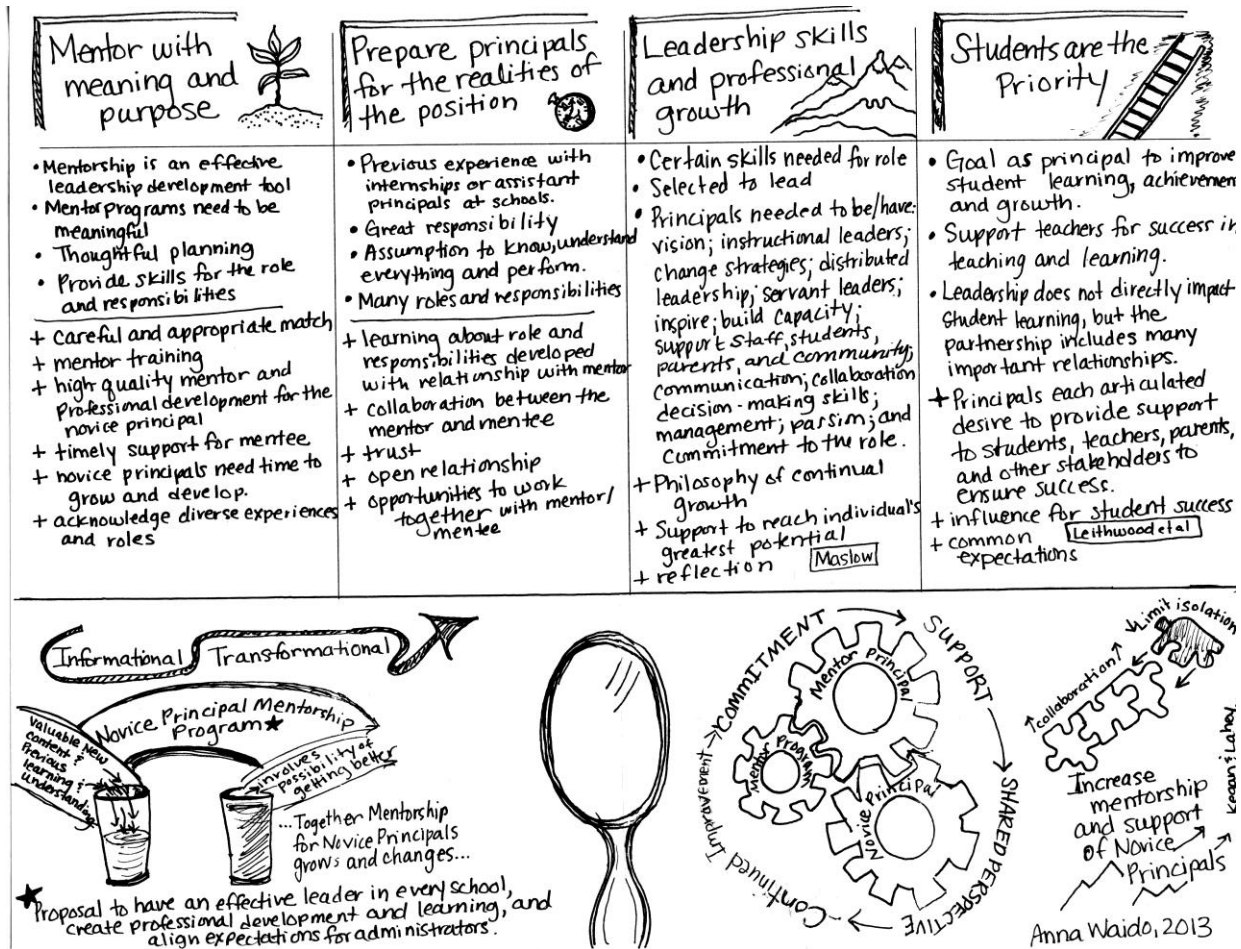 Mentor with
meaning and
purpose
• Mentorship is an effective
leadership development tool
• Mentor programs need to be
meaningful
• Thoughtful planning
• Provide skills for the role
and responsibilities
+ careful and appropriate match
+ mentor training
+ high quality mentor and
professional development for the
novice principal
+ timely support for mentee
+ novice principals need time to
grow and develop.
+ acknowledge diverse experiences
and roles
Prepare principals
for the realities of
the position
• Previous experience with
internships or assistant
principals at schools.
• Great responsibility
• Assumption to know, understand
everything and perform.
• Many roles and responsibilities
+ learning about role and
responsibilities developed
with relationship with mentor
+ collaboration between the
mentor and mentee
+ trust
+ open relationship
+ opportunities to work
together with mentor/
mentee
Leadership skills
and professional
growth
• Certain skills needed for role
• Selected to lead
• Principals needed to be/have:
vision; instructional leaders;
change strategies; distributed
leadership; servant leaders;
inspire; build capacity;
support staff, students,
parents, and community;
communication; collaboration
decision-making skills;
management; passion; and
commitment to the role.
+ Philosophy of continual
growth
+ Support to reach individual's
greatest potential
+ reflection
Maslow
Students are the
Priority
• Goal as principal to improve
student learning, achievement
and growth.
• Support teachers for success in
teaching and learning.
• Leadership does not directly impact
student learning, but the
partnership includes many
important relationships.
+ Principals each articulated
desire to provide support
to students, teachers, parents,
and other stakeholders to
ensure success.
+ influence for student success
+ common
expectations
Leithwood et al
Informational Transformational
Novice Principal Mentorship
Program★
Valuable New
content &
Previous
learning &
understanding
involves
possibility of
getting better
...Together Mentorship
for Novice Principals
grows and changes...
★Proposal to have an effective leader in every school,
create professional development and learning, and
align expectations for administrators.
COMMITMENT
SUPPORT
SHARED PERSPECTIVE
Continued Improvement
Mentor Principal
Mentor Program
Novice Principal
↓Limit isolation
↑Collaboration↑
Increase
mentorship
and support
of Novice
Principals
Kegan & Lahey
Anna Waido, 2013